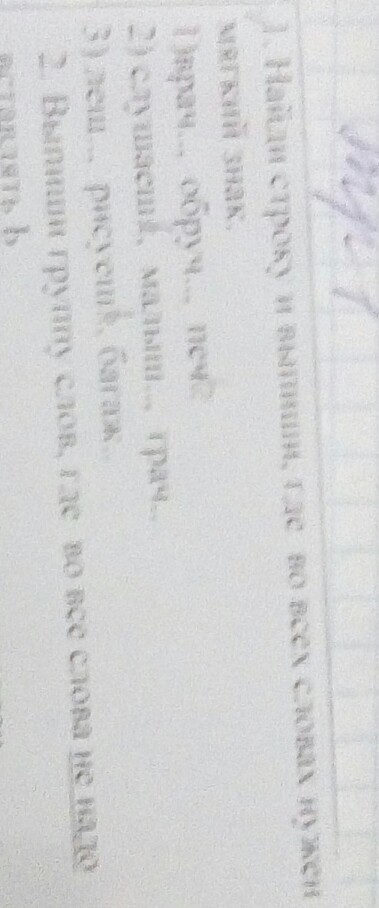 1. Найди строку и выпиши, где во всех словах нужен
мягкий знак.
1)врач... обруч... печь
2) слушаешь, малыш... грач...
3) лещ... рисуешь, багаж...
2. Выпиши группу слов, где во все слова не надо
вставлять ь